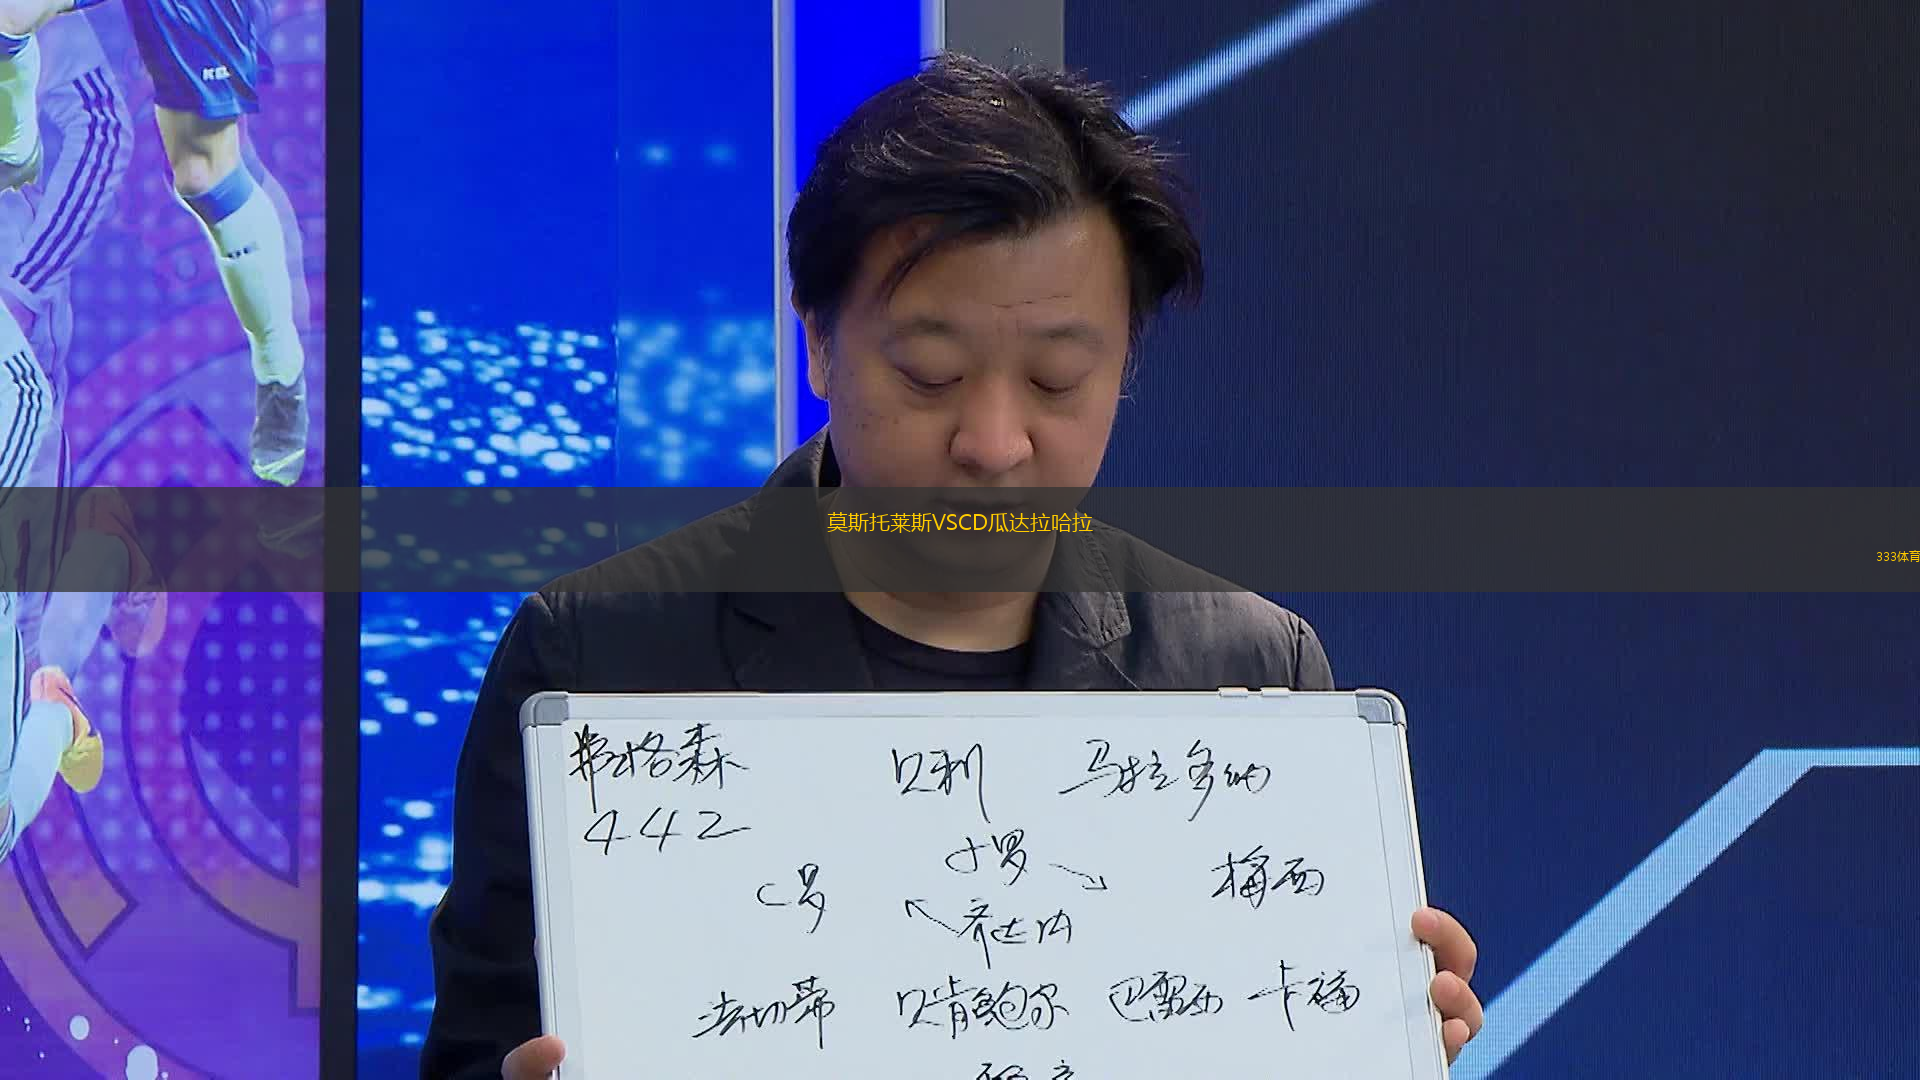 莫斯托莱斯VSCD瓜达拉哈拉
333体育
弗格森 贝利 马拉多纳
442
小罗
C罗 梅西
齐达内
法切蒂 贝肯鲍尔 巴雷西 卡福